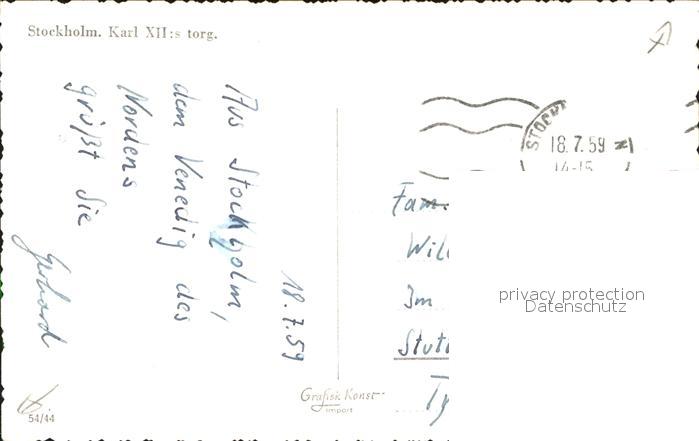 Stockholm. Karl XII:s torg.
18.7.59
Aus Stockholm,
dem Venedig des
Nordens
grüßt Sie
Gerhard
STOCKH
18.7.59
14-15
Fam.
Im
privacy protection
Datenschutz
Grafisk Konst
Import
54/44